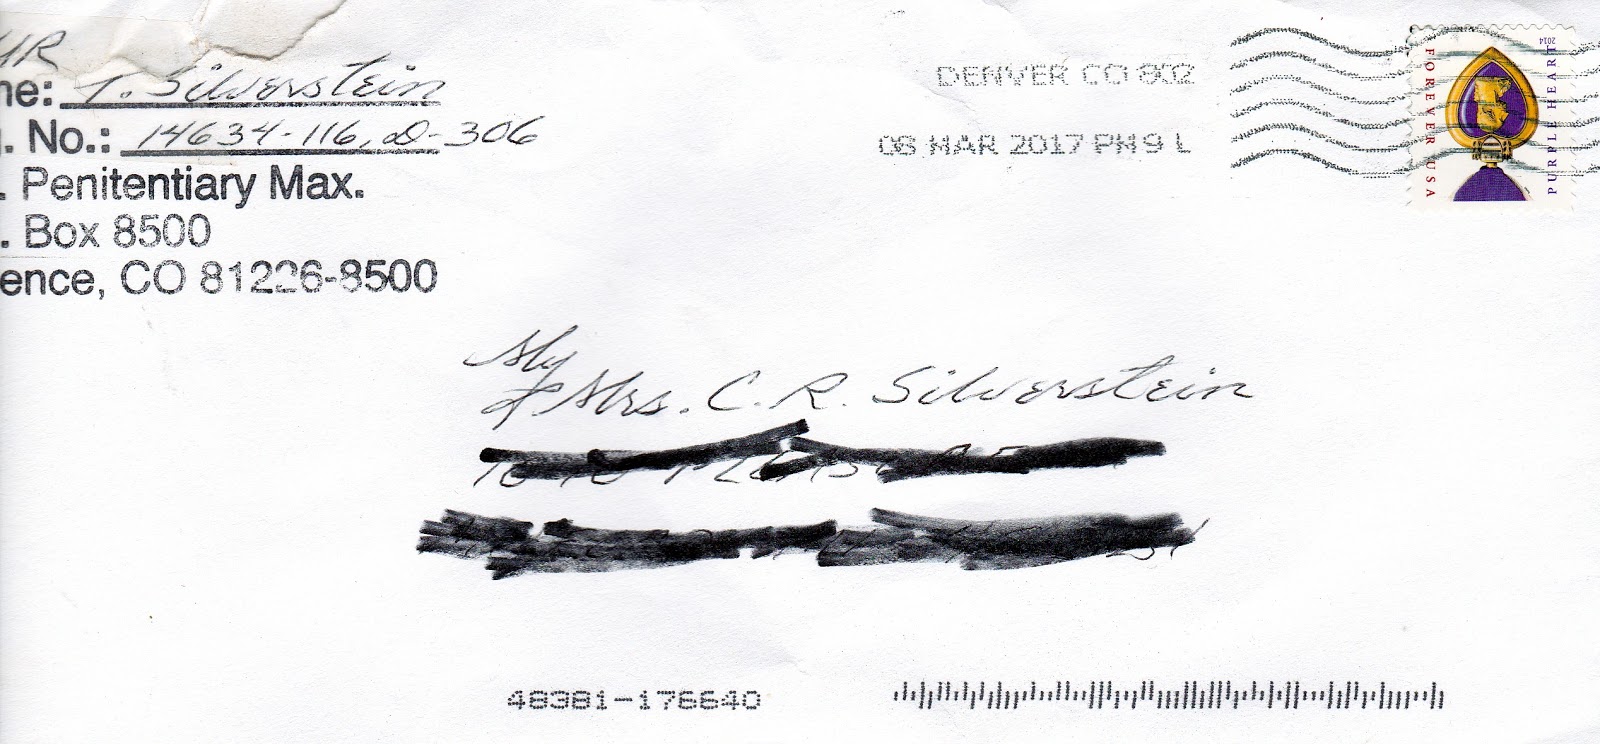 UR
ne: T. Silverstein
. No.: 14634-116, D-306
. Penitentiary Max.
. Box 8500
ence, CO 81226-8500
DENVER CO 802
06 MAR 2017 PM 9 L
FOREVER USA
PURPLE HEART
2014
My
Mrs. C. R. Silverstein
48381-176640